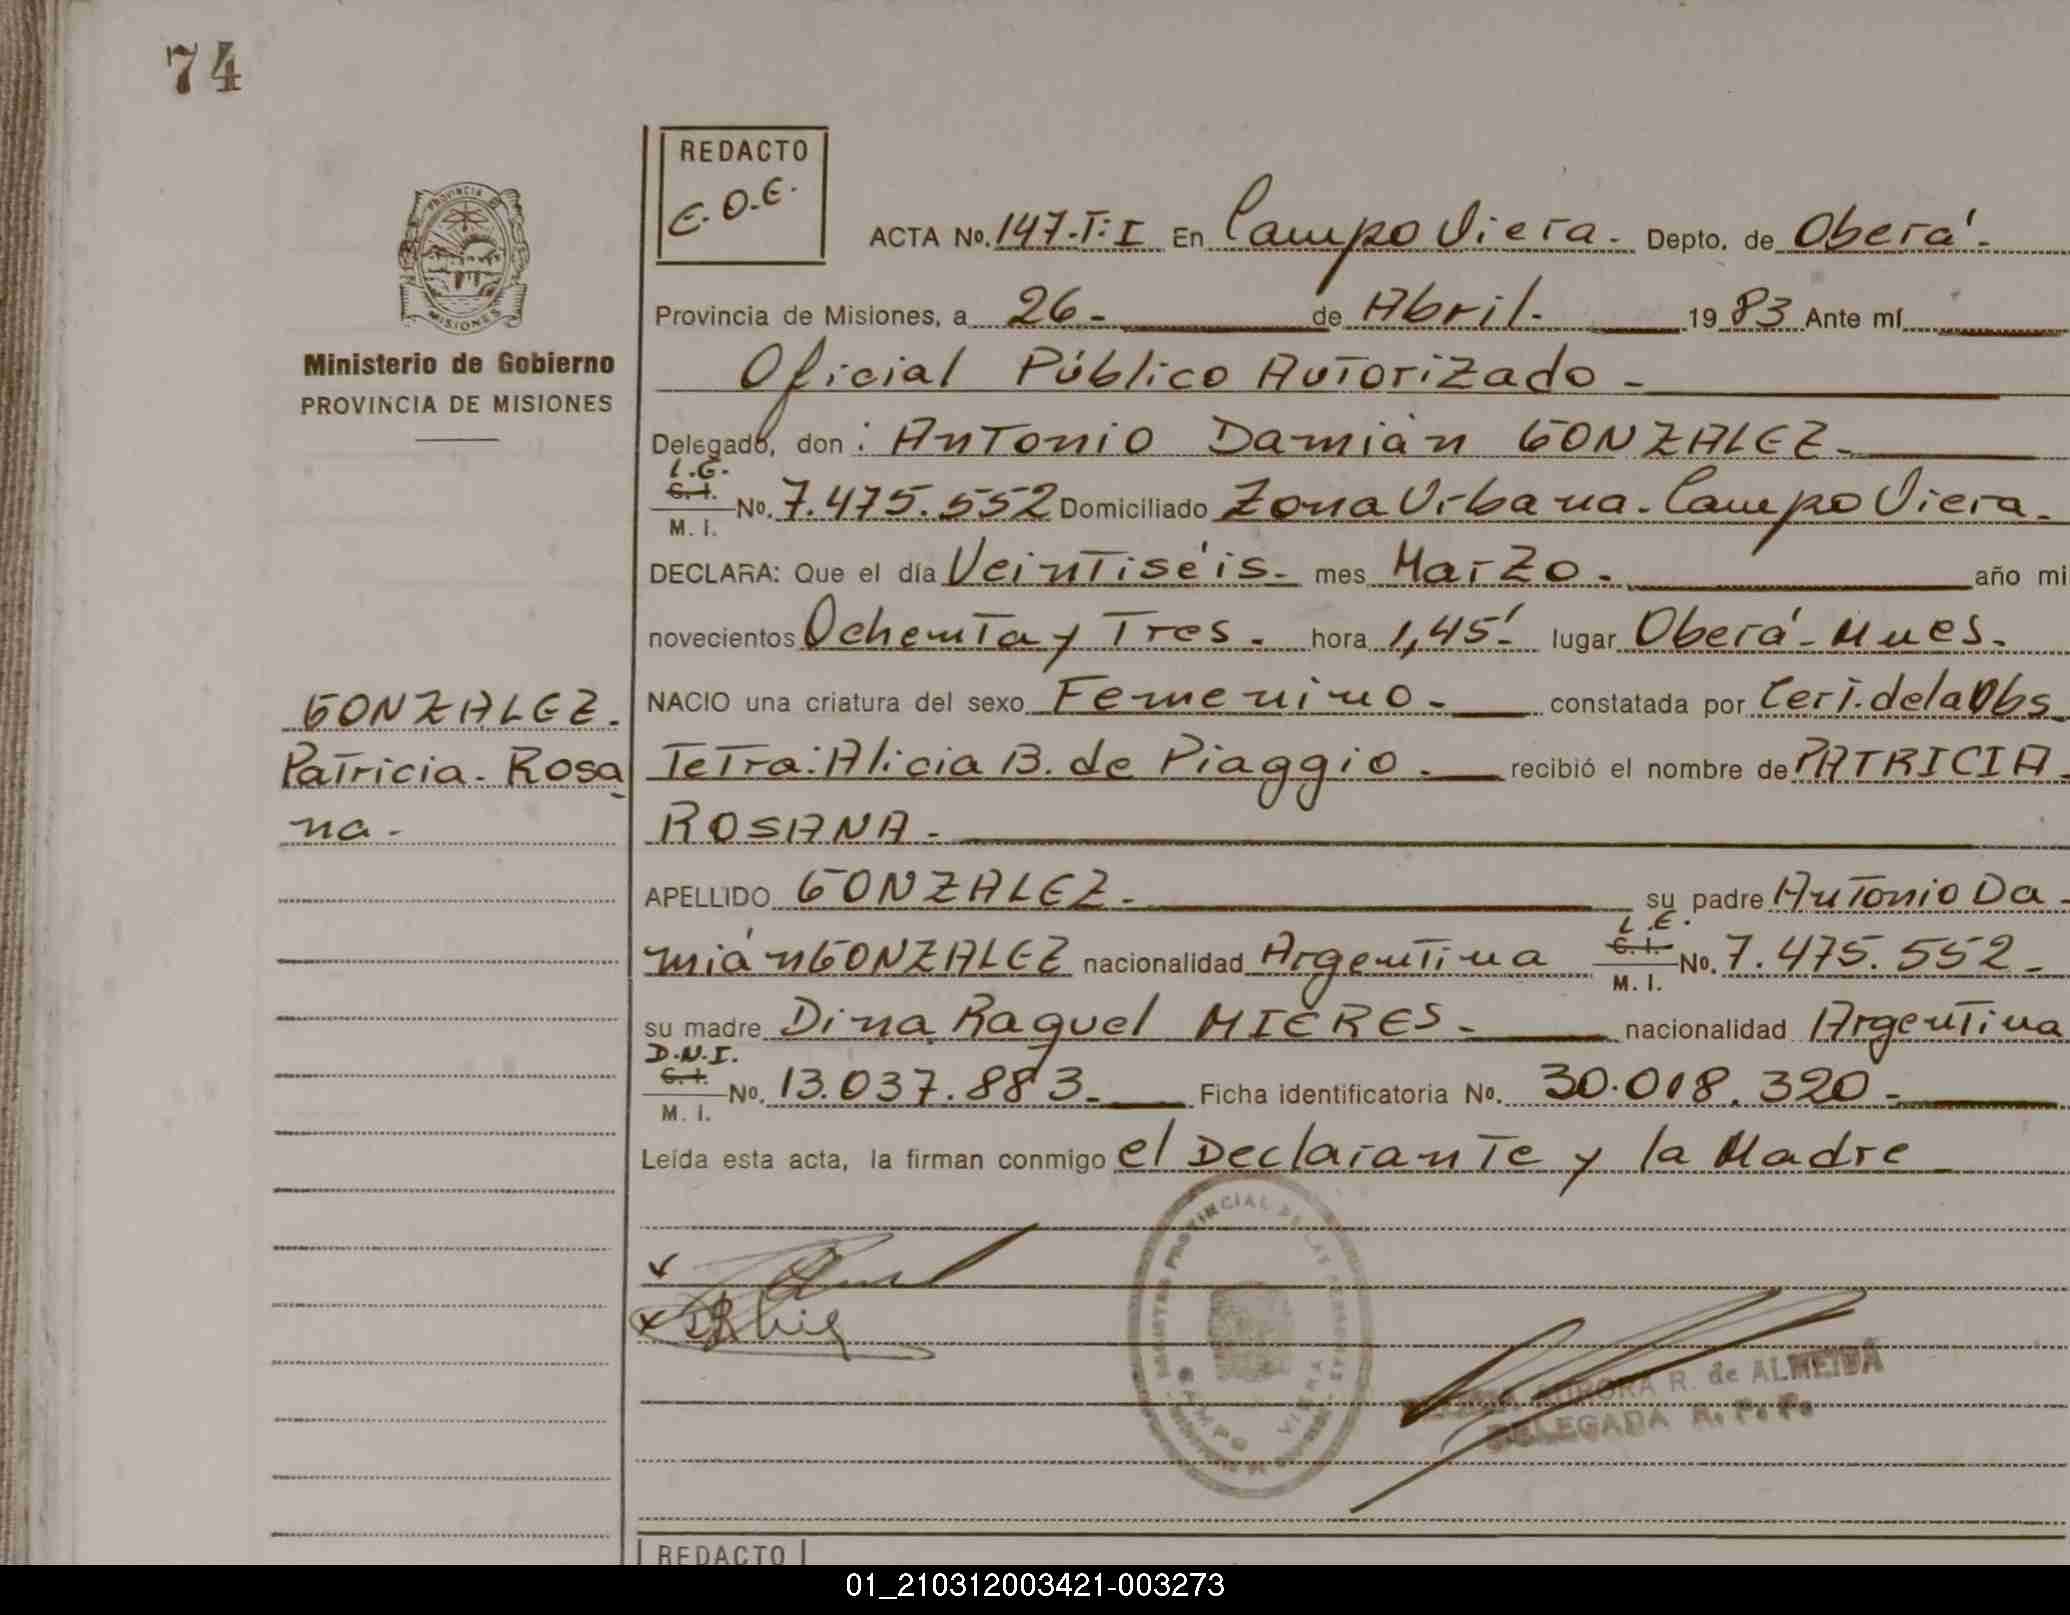 74
PROVINCIA
MISIONES
Ministerio de Gobierno
PROVINCIA DE MISIONES
REDACTO
E.O.E.
ACTA No. 147-T:I En Campo Viera.- Depto. de Oberá.-
Provincia de Misiones, a 26.- de Abril.- 1983 Ante mí
Oficial Público Autorizado.-
Delegado, don: Antonio Damián GONZALEZ.-
L.E.
C.I. No. 7.475.552 Domiciliado Zona Urbana. Campo Viera.-
M. I.
DECLARA: Que el día Veintiséis.- mes Marzo.- año mi
novecientos Ochenta y Tres.- hora 1,45'.- lugar Oberá-Mnes.-
GONZALEZ.
NACIO una criatura del sexo Femenino.- constatada por Cert. de la Obs
Patricia. Rosa
Tetra: Alicia B. de Piaggio.- recibió el nombre de PATRICIA
na.-
ROSANA.-
APELLIDO GONZALEZ.- su padre Antonio Da
L.E.
mián GONZALEZ nacionalidad Argentina C.I. No. 7.475.552.-
M. I.
su madre Dina Raquel MIERES.- nacionalidad Argentina
D.N.I.
C.I. No. 13.037.883.- Ficha identificatoria No. 30.018.320.-
M. I.
Leída esta acta, la firman conmigo el Declarante y la Madre
PROVINCIAL DE LAS PERSONAS
CAMPO VIERA
AURORA R. de ALMEIDA
DELEGADA R. P. P.
REDACTO
01_210312003421-003273